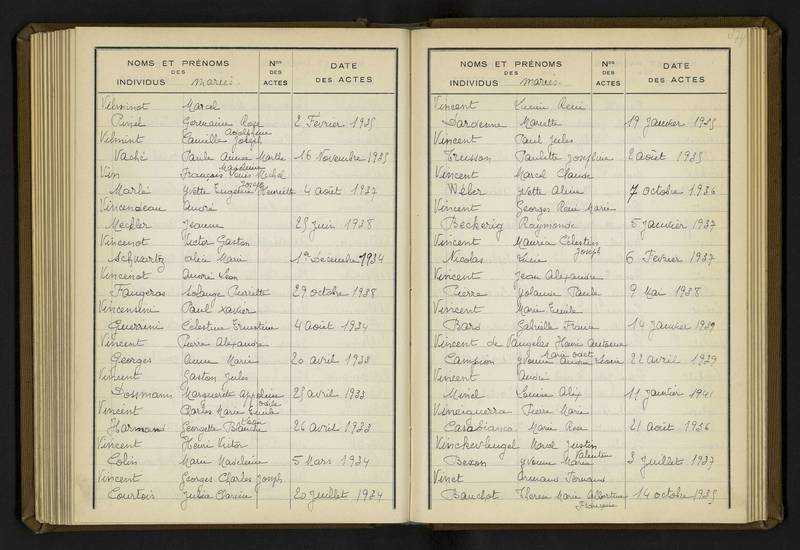 NOMS ET PRÉNOMS DES INDIVIDUS mariés. Nos DES ACTES DATE DES ACTES
Vilminot Marcel
Pinel Germaine Rose 2 Février 1935
Vilmint Camille Joseph Adolphine
Vaché Paule Aimée Marthe 16 Novembre 1935
Vin François Louis Michel Madeleine
Marlé Yvette Eugénie Henriette 4 août 1937
Vincendeau André
Meckler Jeanne 25 juin 1938
Vincenot Victor Gaston
Schwartz Alice Marie 1er Décembre 1934
Vincenot André Léon
Faugeras Solange Pierrette 29 octobre 1938
Vincensini Paul Xavier
Guerrini Célestine Ernestine 4 août 1934
Vincent Pierre Alexandre
Georges Anne Marie 20 avril 1933
Vincent Gaston Jules
Dosmann Marguerite Appoline 25 avril 1933
Vincent Charles Marie Emile
Harmand Georgette Blanche 26 avril 1933
Vincent Henri Victor
Colin Marie Madeleine 5 Mars 1934
Vincent Georges Charles Joseph
Courtois Julia 20 juillet 1934
NOMS ET PRÉNOMS DES INDIVIDUS mariés. Nos DES ACTES DATE DES ACTES
Vincent Lucien René
Dardenne Mariette 19 janvier 1935
Vincent Paul Jules
Tresson Paulette Joséphine 2 août 1935
Vincent Marcel Claude
Wéber Yvette Aline 7 octobre 1936
Vincent Georges René Marie
Beckerig Raymonde 5 janvier 1937
Vincent Maurice Célestin Joseph
Nicolas Lucie 6 Février 1937
Vincent Jean Alexandre
Pierre Yolande Paule 9 Mai 1938
Vincent Marie Emile
Bard Gabrielle 14 janvier 1939
Vincent de Vaugelas Henri Antoine
Campion Yvonne Andrée Marie Odet 22 avril 1939
Vincent André
Minel Louise Alix 11 janvier 1941
Vinciguerra Pierre Marie
Casabianca Marie Rose 21 août 1936
Vinckevleugel Marcel Justin
Bexon Yvonne Marie Valentine 3 juillet 1937
Vinet Armand Fernand
Bauchot Thérèse Marie Albertine 14 octobre 1935